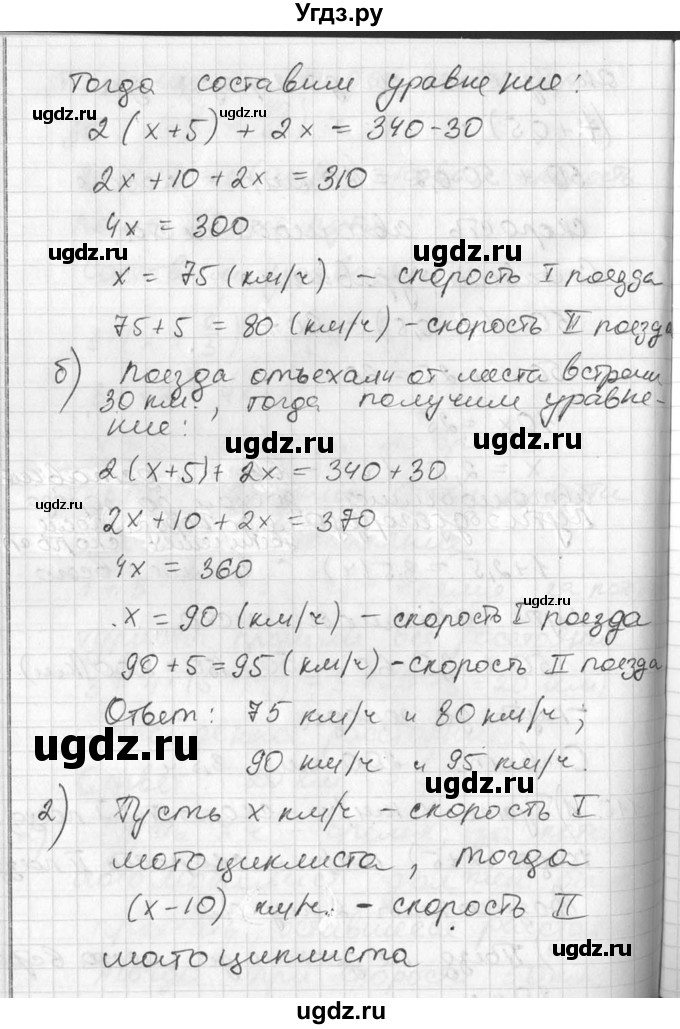 Угдз.ру
Тогда составим уравнение:
ugdz.ru ugdz.ru
2(x+5) + 2x = 340-30
2x+10+2x = 310
4x = 300
ugdz.ru ugdz.ru
x = 75 (км/ч) - скорость I поезда
75+5 = 80 (км/ч) - скорость II поезда
б) поезда отъехали от места встречи
30 км., тогда получим уравне-
ние:
ugdz.ru ugdz.ru
2(x+5)+ 2x = 340+30
ugdz.ru
2x+10+2x = 370
4x = 360
ugdz.ru
x = 90 (км/ч) - скорость I поезда
90+5=95 (км/ч) - скорость II поезда
Ответ: 75 км/ч и 80 км/ч;
ugdz.ru
90 км/ч и 95 км/ч.
ugdz.ru
2) Пусть x км/ч - скорость I
мотоциклиста, тогда
(x-10) км/ч. - скорость II
мотоциклиста
ugdz.ru ugdz.ru
ugdz.ru